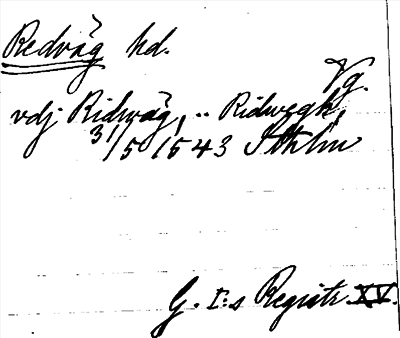 Redväg hd.
Vg.
vdj Ridwäg, .. Ridwegh,
31/5 1543 Sthlm
G. I:s Registr. XV.